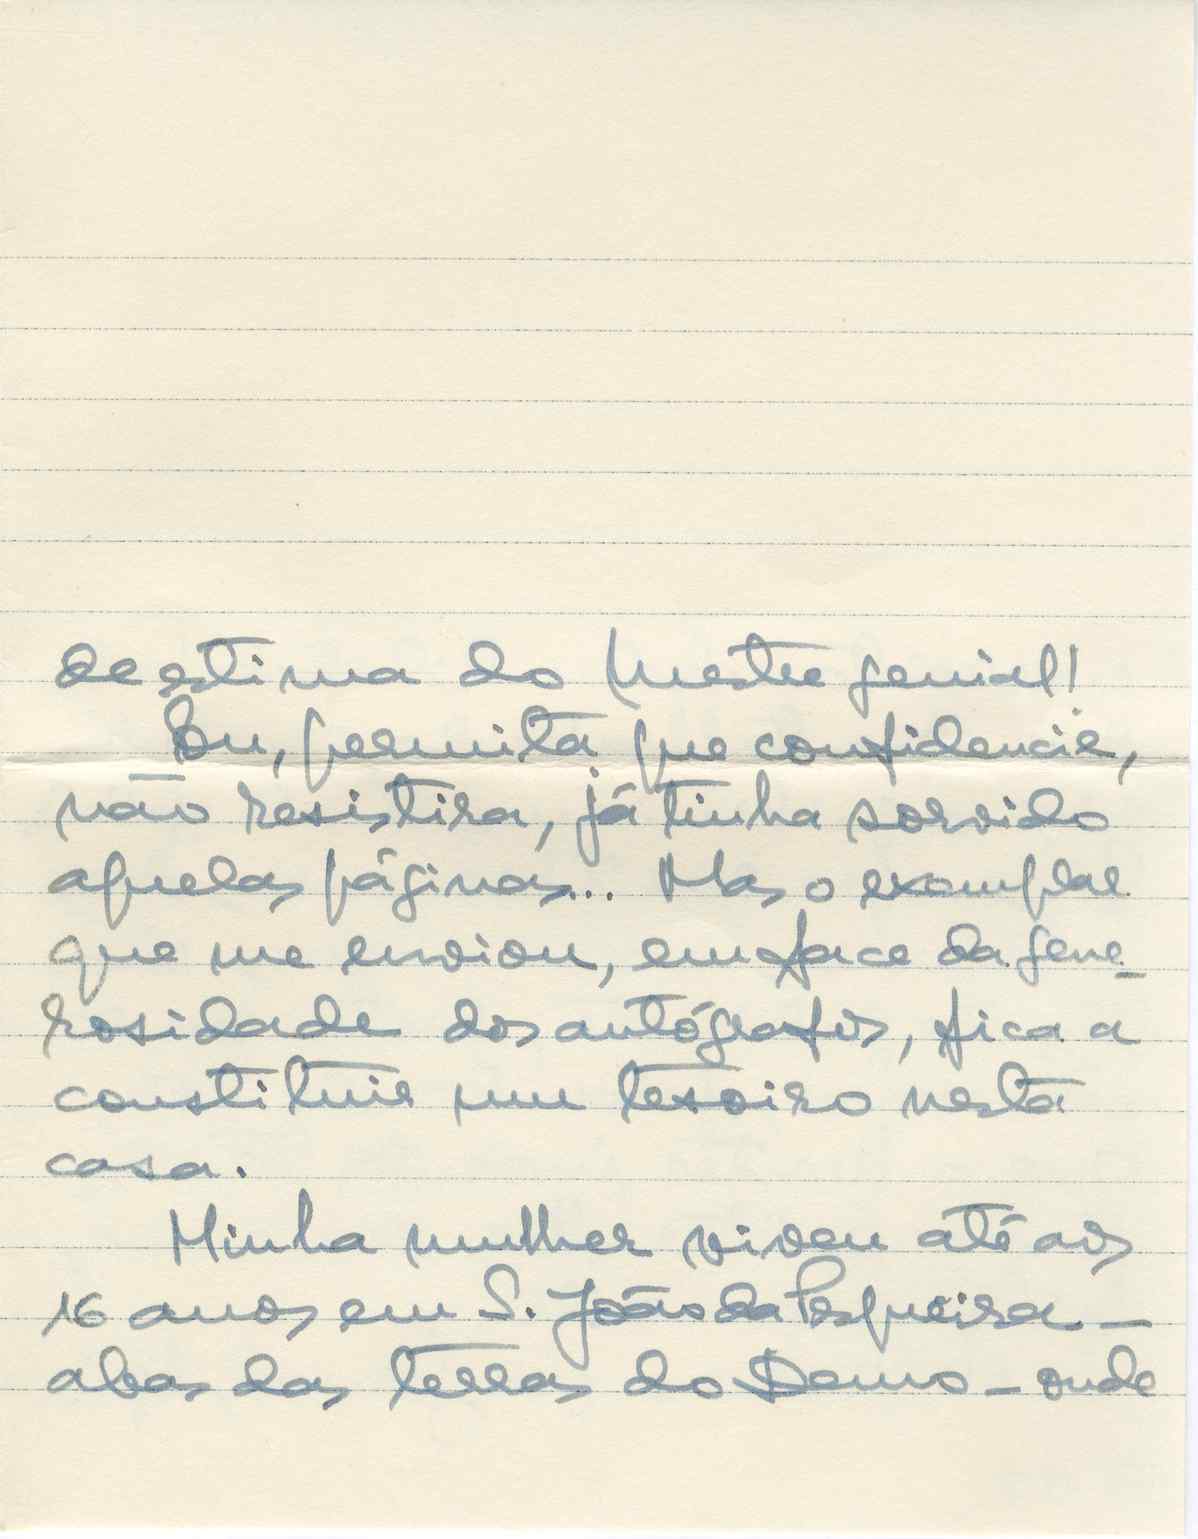 de estima do Mestre genial!
Eu, permita que confidencie,
não resistira, já tinha sorvido
aquelas páginas... Mas o exemplar
que me enviou, em face da gene-
rosidade dos autógrafos, fica a
constituir um tesoiro nesta
casa.
Minha mulher viveu até aos
16 anos em S. João da Pesqueira —
abas das terras do Demo — onde